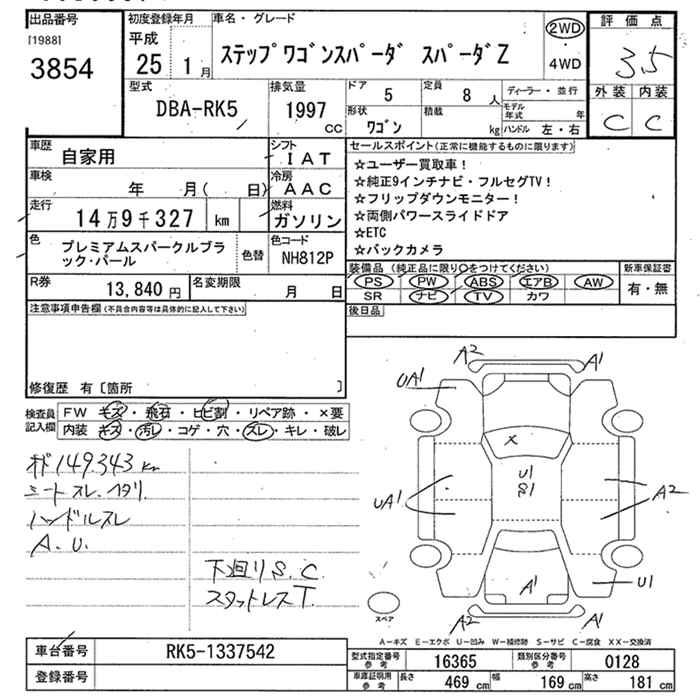 出品番号
[1988]
3854
初度登録年月
平成
25 1月
車名・グレード
ステップワゴンスパーダ スパーダZ
2WD
・
4WD
評価点
3.5
外装 内装
C C
型式
DBA-RK5
排気量
1997
CC
ドア
5
定員
8 人
形状
ワゴン
積載
kg
ディーラー・並行
モデル年式 年
ハンドル 左・右
車歴
自家用
シフト
IAT
車検
年 月( 日)
冷房
AAC
走行
14万9千327 km
燃料
ガソリン
色
プレミアムスパークルブラック・パール
色替
色コード
NH812P
R券
13,840 円
名変期限
月 日
セールスポイント(正常に機能するものに限ります)
☆ユーザー買取車!
☆純正9インチナビ・フルセグTV!
☆フリップダウンモニター!
☆両側パワースライドドア
☆ETC
☆バックカメラ
装備品(純正品に限り○をつけてください)
PS PW ABS エアB AW
SR ナビ TV カワ
新車保証書
有・無
後日品
注意事項申告欄(不具合内容等は具体的に記入して下さい)
修復歴 有〔箇所 〕
検査員記入欄
FW キズ・飛石・ヒビ割・リペア跡・×要
内装 キズ・汚レ・コゲ・穴・スレ・キレ・破レ
149.343 km
シートスレ、ヘタリ
ハンドルスレ
A.U.
下廻りS.C.
スタットレスT.
A2
A1
UA1
X
U1
S1
UA1
A2
A1
U1
A2
A1
スペア
A−キズ E−エクボ U−凹み W−補修跡 S−サビ C−腐食 XX−交換済
車台番号
RK5-1337542
登録番号
型式指定番号 参考
16365
類別区分番号 参考
0128
車庫証明用 参考
長さ 469 cm
幅 169 cm
高さ 181 cm